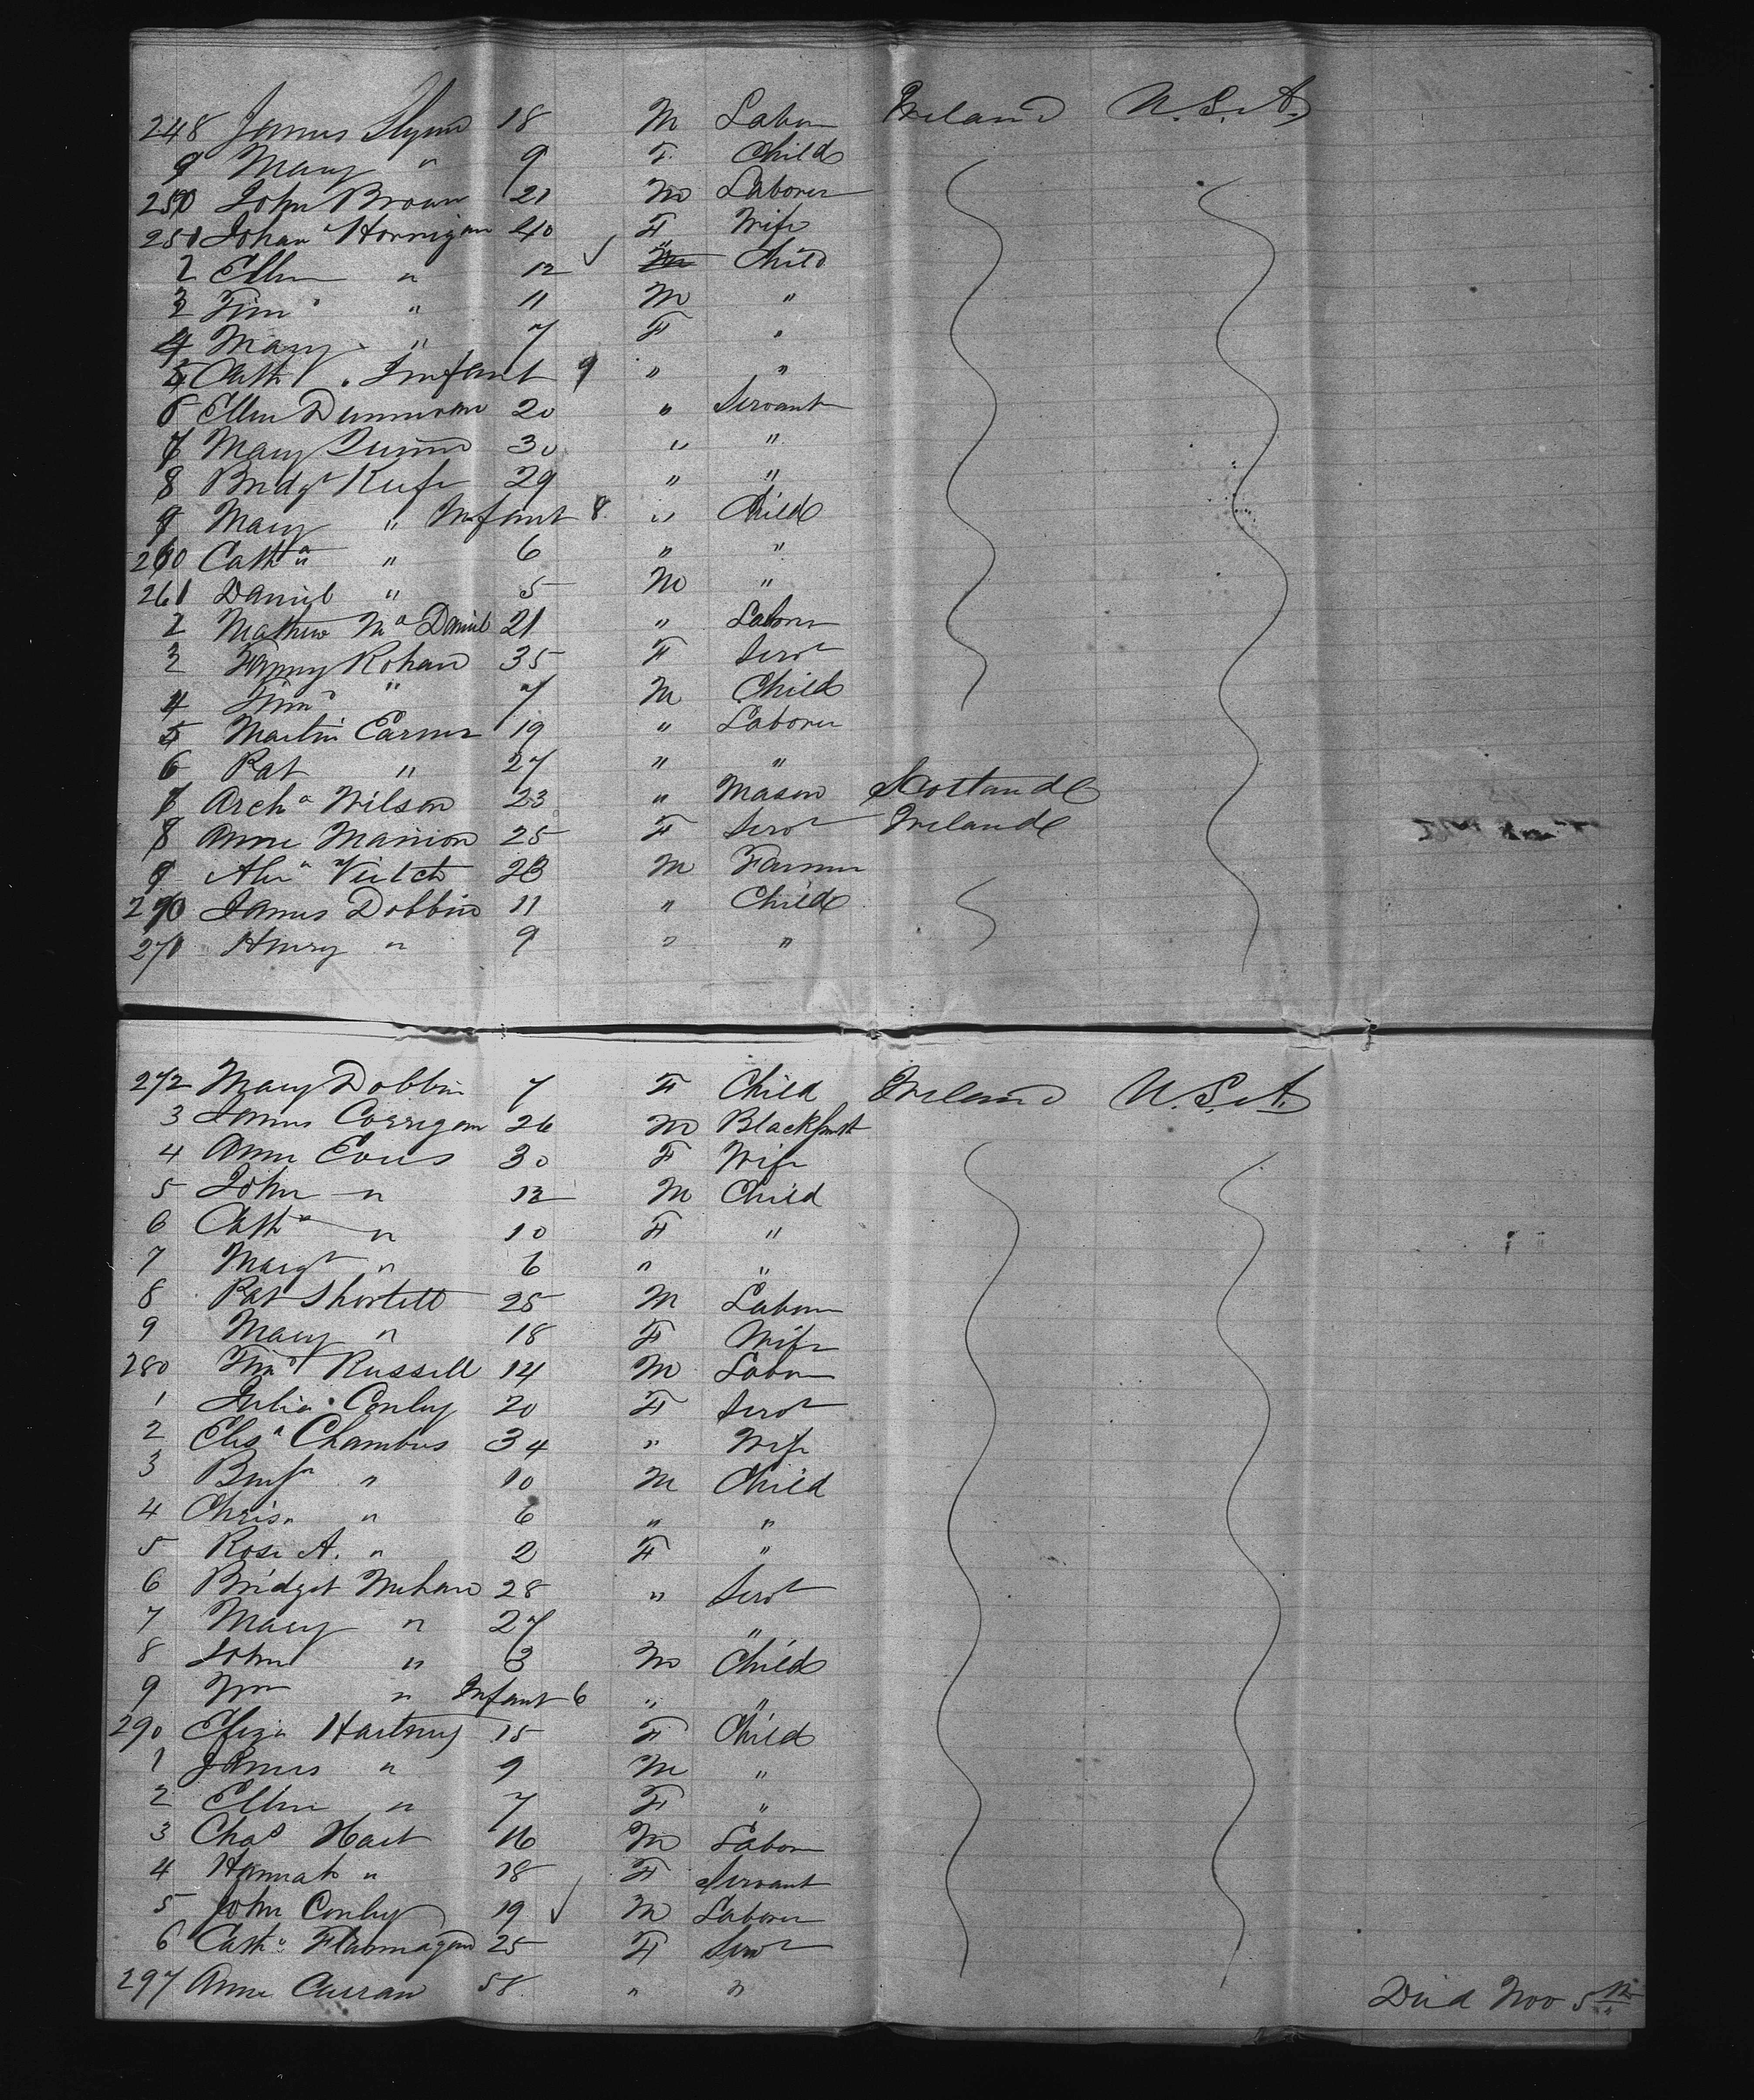 248 James Flynn 18 M Labor Ireland U.S.A.
9 Mary " 9 F. Child
250 John Brown 21 M Laborer
251 Johan Horrigan 40 F Wife
2 Ellen " 12 " Child
3 Tim " 11 M "
4 Mary " 7 F "
5 Cath " Infant 9 " "
6 Ellen Dunnivan 20 " Servant
7 Mary Quinn 30 " "
8 Bridgt Keefe 29 " "
9 Mary " Infant 8 " Child
260 Catha " 6 " "
261 Daniel " 5 M "
2 Mathew Mc Daniel 21 " Labor
3 Fanny Rohan 35 F Servt
4 Tim " 7 M Child
5 Martin Earner 19 " Laborer
6 Pat " 27 " "
7 Archd Wilson 23 " Mason Scotland
8 Anne Mannion 25 F Servt Ireland
9 Alexr Veitch 23 M Farmer
270 James Dobbin 11 " Child
271 Henry " 9 " "
272 Mary Dobbin 7 F Child Ireland U.S.A.
3 James Corrigan 26 M Blacksmith
4 Anne 30 F Wife
5 John " 12 M Child
6 Cath " 10 F "
7 Margt " 6 " "
8 Pat Shortell 25 M Labor
9 Mary " 18 F Wife
280 Tim Russell 14 M Labor
1 Julia Conley 20 F Servt
2 Elisa Chambers 34 " Wife
3 Benjn " 10 M Child
4 Chris. " 6 " "
5 Rose A. " 2 F "
6 Bridget Mehan 28 " Servt
7 Mary " 27 "
8 John " 3 M Child
9 Wm " Infant 6 " "
290 Eliza Hartney 15 F Child
1 James " 9 M "
2 Ellen " 7 F "
3 Chas Hart 16 M Labor
4 Hannah " 18 F Servant
5 John Conley 19 M Laborer
6 Catha Flannagan 25 F Servt
297 Anne Curran 58 " " Died Nov 5th